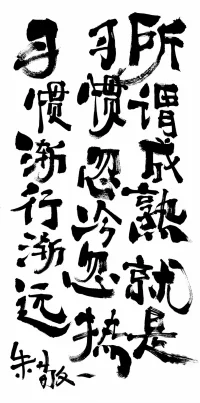 所谓成熟就是
习惯忽冷忽热
习惯渐行渐远
朱敬一